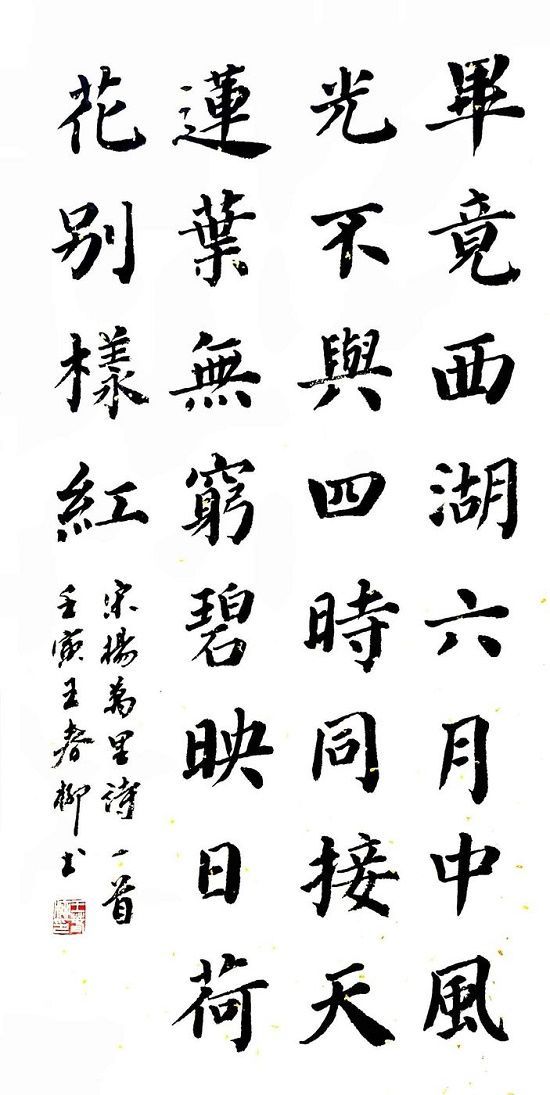 畢竟西湖六月中風
光不與四時同接天
蓮葉無窮碧映日荷
花別樣紅
宋楊萬里詩一首
壬寅王春柳书